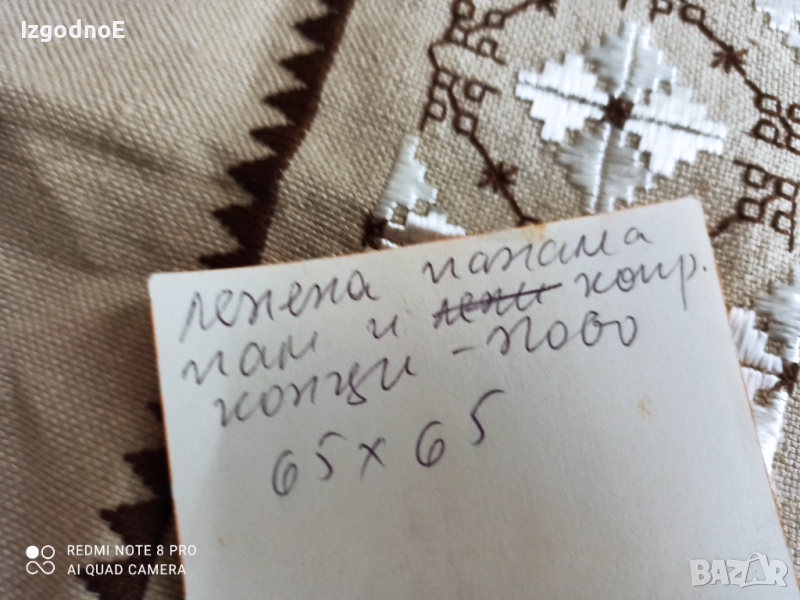 IzgodnoE
ленена панама
пам и лени копр.
конци - ново
65 x 65
REDMI NOTE 8 PRO
AI QUAD CAMERA
BAZAR